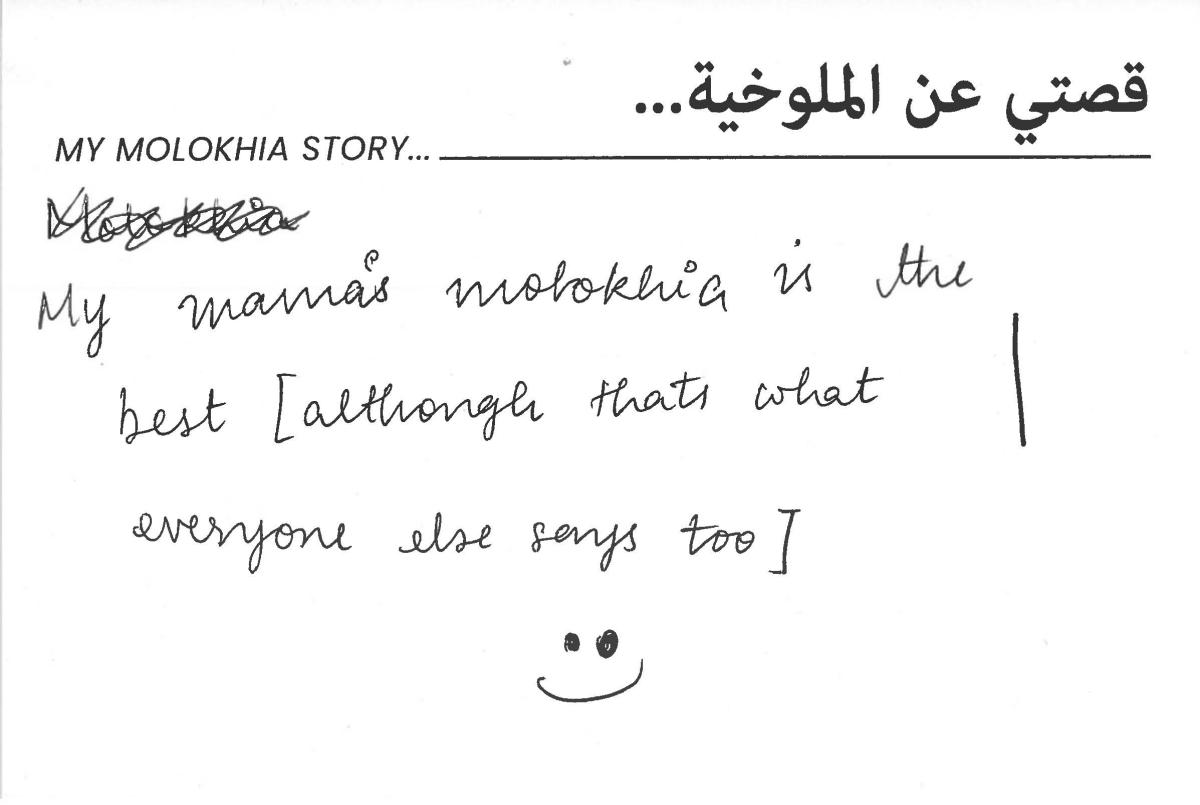 قصتي عن الملوخية...
MY MOLOKHIA STORY...
My mama's molokhia is the
best [although thats what
everyone else says too]